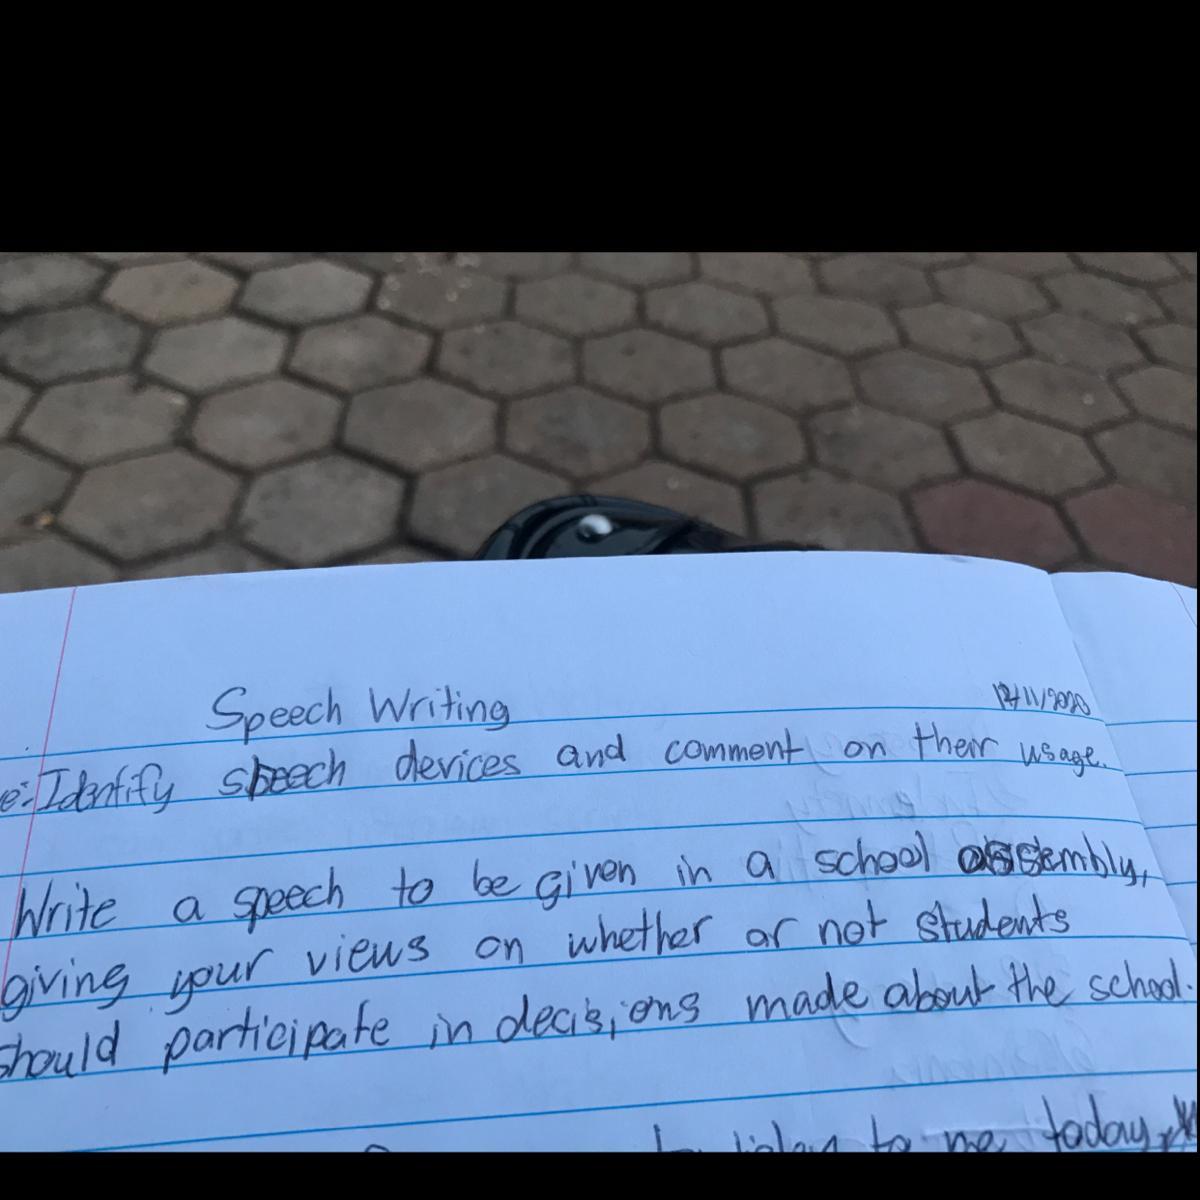 Speech Writing
12/11/2020
e:- Identify speech devices and comment on their usage.
Write a speech to be given in a school assembly,
giving your views on whether or not students
should participate in decisions made about the school.
to me today,